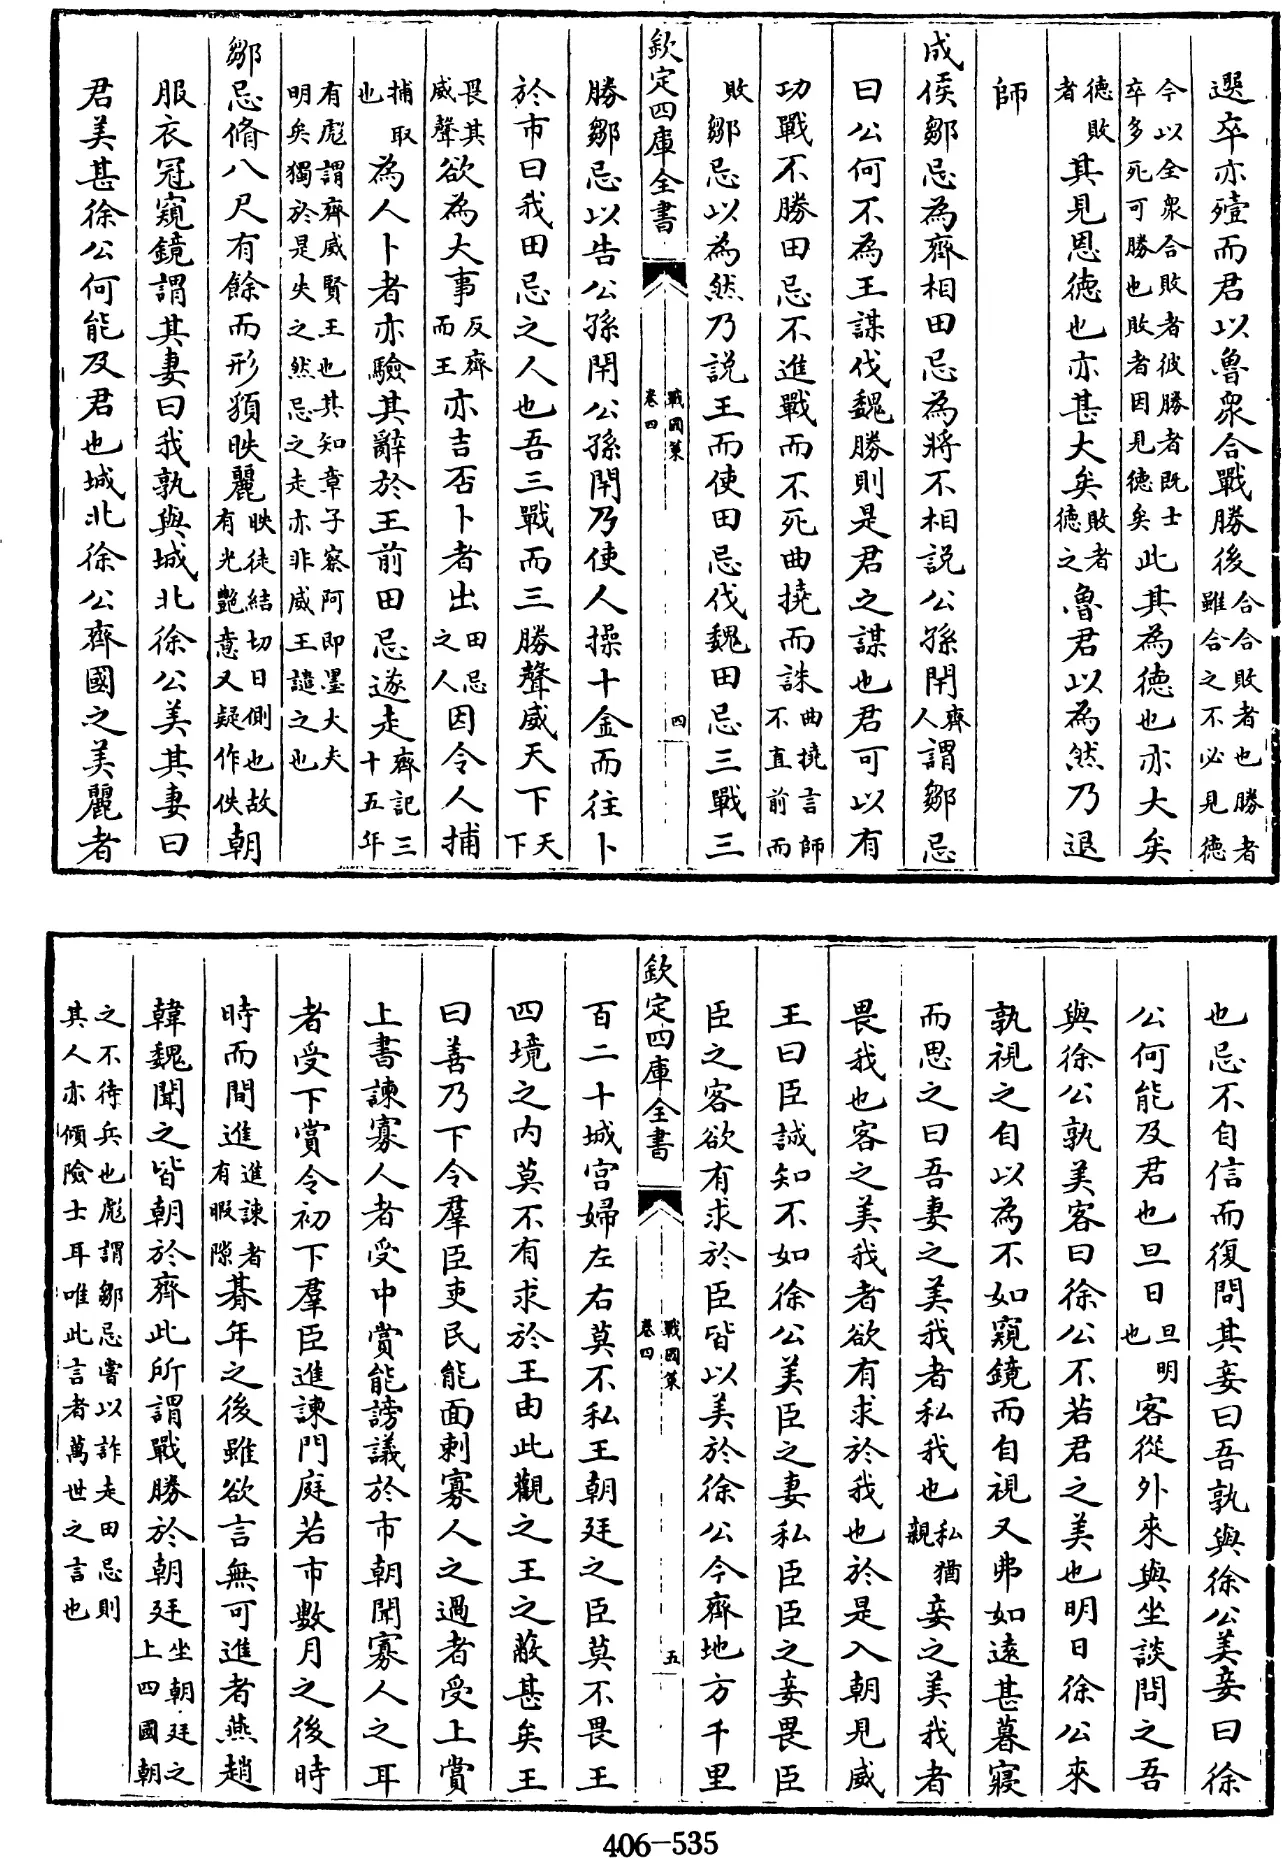 選卒亦殪而君以魯衆合戰勝後合合敗者也勝者雖合之不必見德
今以全衆合敗者彼勝者既士卒多死可勝也敗者因見德矣此其為德也亦大矣
德敗者其見恩德也亦甚大矣敗者德之魯君以為然乃退
師
成侯鄒忌為齊相田忌為將不相説公孫閈齊人謂鄒忌
曰公何不為王謀伐魏勝則是君之謀也君可以有
功戰不勝田忌不進戰而不死曲撓而誅曲撓言師不直前而
敗鄒忌以為然乃説王而使田忌伐魏田忌三戰三
欽定四庫全書 戰國策 卷四 四
勝鄒忌以告公孫閈公孫閈乃使人操十金而往卜
於市曰我田忌之人也吾三戰而三勝聲威天下天下
畏其威聲欲為大事反齊而王亦吉否卜者出田忌之人因令人捕
捕取也為人卜者亦驗其辭於王前田忌遂走齊記三十五年
有彪謂齊威賢王也其知章子察阿即墨大夫明矣獨於是失之然忌之走亦非威王譴之也
鄒忌脩八尺有餘而形頯昳麗昳徒結切日側也故有光艶意又疑作佚朝
服衣冠窺鏡謂其妻曰我孰與城北徐公美其妻曰
君美甚徐公何能及君也城北徐公齊國之美麗者
也忌不自信而復問其妾曰吾孰與徐公美妾曰徐
公何能及君也旦日旦明也客從外來與坐談問之吾
與徐公孰美客曰徐公不若君之美也明日徐公來
孰視之自以為不如窺鏡而自視又弗如遠甚暮寢
而思之曰吾妻之美我者私我也私猶親妾之美我者
畏我也客之美我者欲有求於我也於是入朝見威
王曰臣誠知不如徐公美臣之妻私臣臣之妾畏臣
臣之客欲有求於臣皆以美於徐公今齊地方千里
欽定四庫全書 戰國策 卷四 五
百二十城宮婦左右莫不私王朝廷之臣莫不畏王
四境之内莫不有求於王由此觀之王之蔽甚矣王
曰善乃下令羣臣吏民能面刺寡人之過者受上賞
上書諫寡人者受中賞能謗議於市朝聞寡人之耳
者受下賞令初下羣臣進諫門庭若市數月之後時
時而間進進諫者有暇隙朞年之後雖欲言無可進者燕趙
韓魏聞之皆朝於齊此所謂戰勝於朝廷坐朝廷之上四國朝
之不待兵也彪謂鄒忌嘗以詐走田忌則其人亦傾險士耳唯此言者萬世之言也
406-535